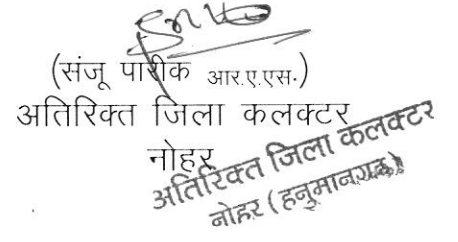 (संजू पारीक आर.ए.एस.)
अतिरिक्त जिला कलक्टर
नोहर
अतिरिक्त जिला कलक्टर
नोहर (हनुमानगढ़)